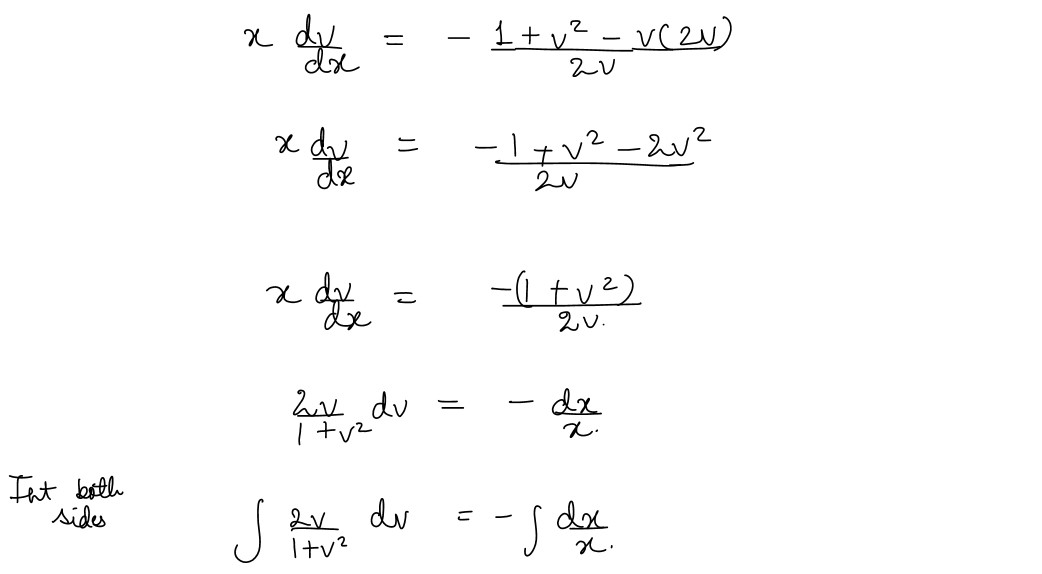 x dv/dx = - (1 + v² - v(2v))/2v
x dv/dx = (-1 + v² - 2v²)/2v
x dv/dx = -(1 + v²)/2v.
2v/(1 + v²) dv = - dx/x.
Int both sides
∫ 2v/(1+v²) dv = - ∫ dx/x.